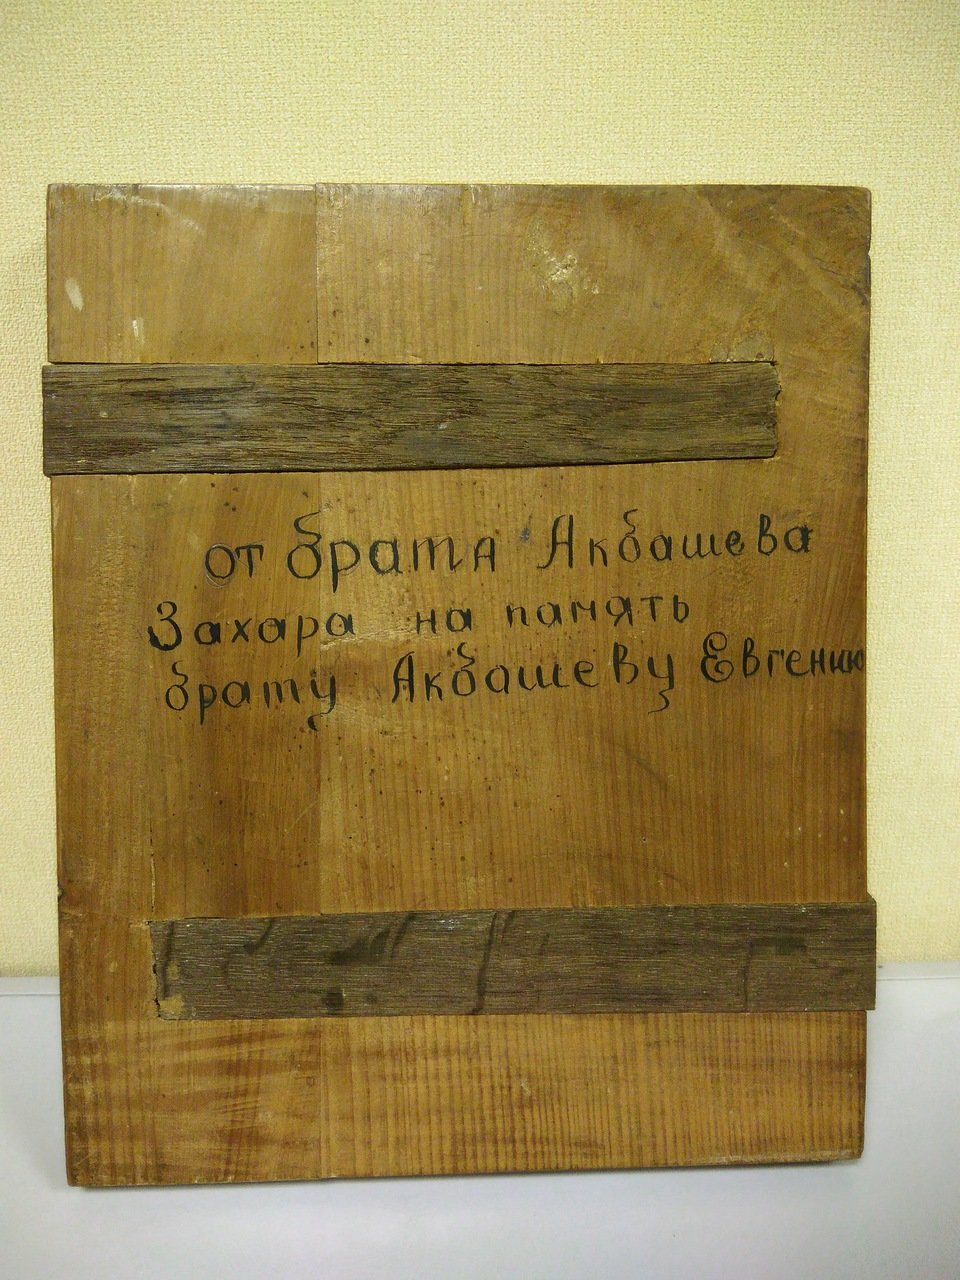 от брата Акбашева
Захара на память
брату Акбашеву Евгению